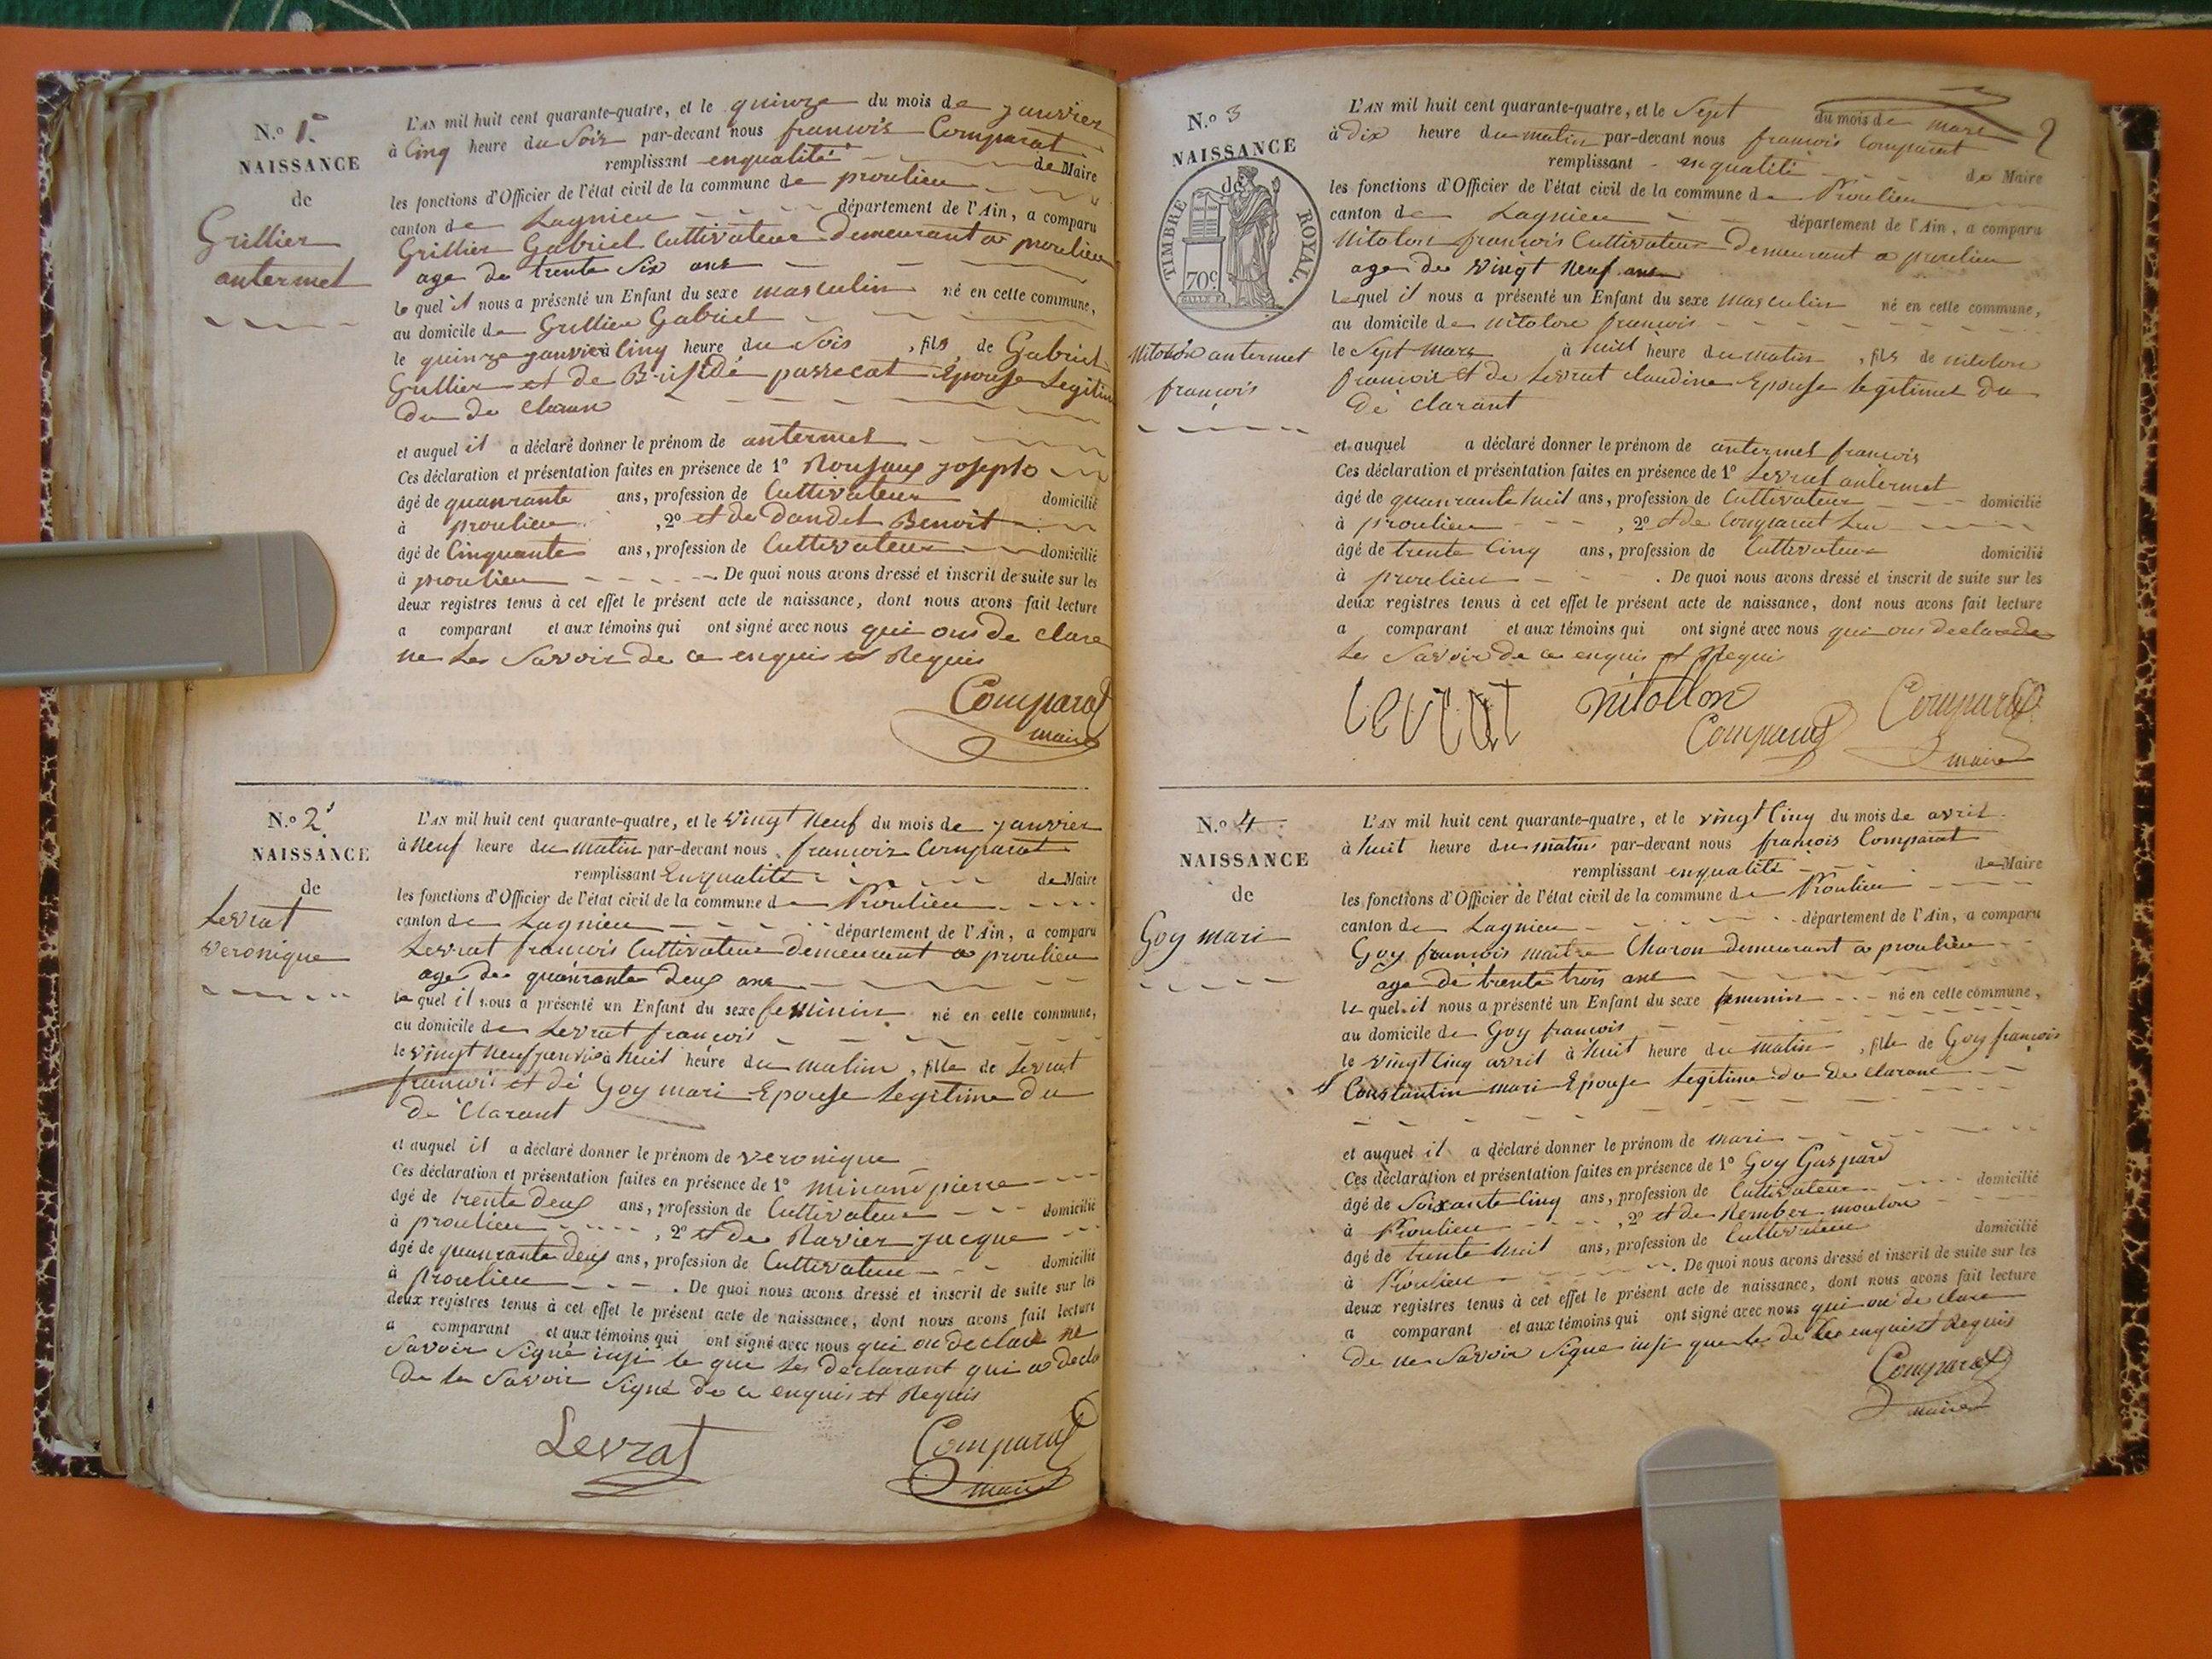 N.o 1.
NAISSANCE
de
Grillier
antermet
L'AN mil huit cent quarante-quatre, et le quinze du mois de janvier
à Cinq heure du Soir par-devant nous francois Comparat
remplissant enqualité de Maire
les fonctions d'Officier de l'état civil de la commune de proulieu
canton de Lagnieu département de l'Ain, a comparu
Grillier Gabriel Cultivateur Demeurant a proulieu
age de trente Six ans
le quel il nous a présenté un Enfant du sexe masculin né en cette commune,
au domicile de Grillier Gabriel
le quinze janvier à Cinq heure du Soir, fils de Gabriel
Grillier et de passerat Epouse Legitime
du de claran
et auquel il a déclaré donner le prénom de antermet
Ces déclaration et présentation faites en présence de 1º Roujoux joseph
âgé de quanrante ans, profession de Cultivateur domicilié
à proulieu, 2º et de dandel Benoit
âgé de Cinquante ans, profession de Cultivateur domicilié
à proulieu De quoi nous avons dressé et inscrit de suite sur les
deux registres tenus à cet effet le présent acte de naissance, dont nous avons fait lecture
a comparant et aux témoins qui ont signé avec nous qui ons de clare
ne Les Savoir de ce enquis et Requis
Comparat
maire
N.o 2
NAISSANCE
de
Levrat
veronique
L'AN mil huit cent quarante-quatre, et le vingt Neuf du mois de janvier
à Neuf heure du matin par-devant nous francois Comparat
remplissant Enqualité de Maire
les fonctions d'Officier de l'état civil de la commune de Proulieu
canton de Lagnieu département de l'Ain, a comparu
Levrat francois Cultivateur demeurant a proulieu
age de quanrante deux ans
le quel il nous a présenté un Enfant du sexe feminin né en cette commune,
au domicile de Levrat françois
le vingt neuf janvie à huit heure du matin, fille de Levrat
francois et dé Goy mari Epouse Legitime du
de Clarant
et auquel il a déclaré donner le prénom de veronique
Ces déclaration et présentation faites en présence de 1º minand pierre
âgé de trente deux ans, profession de Cultivateur domicilié
à proulieu, 2º et de Ravier jacque
âgé de quanrante deux ans, profession de Cultivateur domicilié
à proulieu. De quoi nous avons dressé et inscrit de suite sur les
deux registres tenus à cet effet le présent acte de naissance, dont nous avons fait lecture
a comparant et aux témoins qui ont signé avec nous qui on declaré ne
Savoir Signé insi le que Les declarant qui a decla
de la Savoir Signé de ce enquis et Requis
Levrat Comparat
maire
N.o 3
NAISSANCE
de
TIMBRE ROYAL.
70c
Nitolon antermet
françois
L'AN mil huit cent quarante-quatre, et le Sept du mois de mars
à dix heure du matin par-devant nous francois Comparat
remplissant enqualité de Maire
les fonctions d'Officier de l'état civil de la commune de Proulieu
canton de Lagnieu département de l'Ain, a comparu
Nitolon francois Cultivateur Demeurant a proulieu
age de vingt Neuf ans
Lequel il nous a présenté un Enfant du sexe masculin né en cette commune,
au domicile de nitolon francois
le Sept mars à huit heure du matin, fils de nitolon
francois et de Levrat claudine Epouse legitimet du
de clarant
et auquel a déclaré donner le prénom de antermet francois
Ces déclaration et présentation faites en présence de 1º Levrat antermet
âgé de quanrante huit ans, profession de Cultivateur domicilié
à proulieu, 2º et de Comparat
âgé de trente Cinq ans, profession de Cultivateur domicilié
à proulieu. De quoi nous avons dressé et inscrit de suite sur les
deux registres tenus à cet effet le présent acte de naissance, dont nous avons fait lecture
a comparant et aux témoins qui ont signé avec nous qui ons
Les Savoir de ce enquis et Requis
Levrat nitollon Comparat Comparat
maire
N.o 4
NAISSANCE
de
Goy mari
L'AN mil huit cent quarante-quatre, et le vingt Cinq du mois de avril
à huit heure du matin par-devant nous françois Comparat
remplissant enqualité de Maire
les fonctions d'Officier de l'état civil de la commune de Proulieu
canton de Lagnieu département de l'Ain, a comparu
Goy françois maitre Charon demeurant a proulieu
age de trente trois ans
le quel il nous a présenté un Enfant du sexe feminin né en cette commune,
au domicile de Goy francois
le vingt Cinq avril à huit heure du matin, fille de Goy françois
et Constantin mari Epouse Legitime du de clarant
et auquel il a déclaré donner le prénom de mari
Ces déclaration et présentation faites en présence de 1º Goy Gaspard
âgé de Soixante Cinq ans, profession de Cultivateur domicilié
à Proulieu, 2º et de Rember moulon
âgé de trente huit ans, profession de Cultivateur domicilié
à Proulieu. De quoi nous avons dressé et inscrit de suite sur les
deux registres tenus à cet effet le présent acte de naissance, dont nous avons fait lecture
a comparant et aux témoins qui ont signé avec nous qui on de clare
de ne Savoir Signe insi que enquis et Requis
Comparat
maire